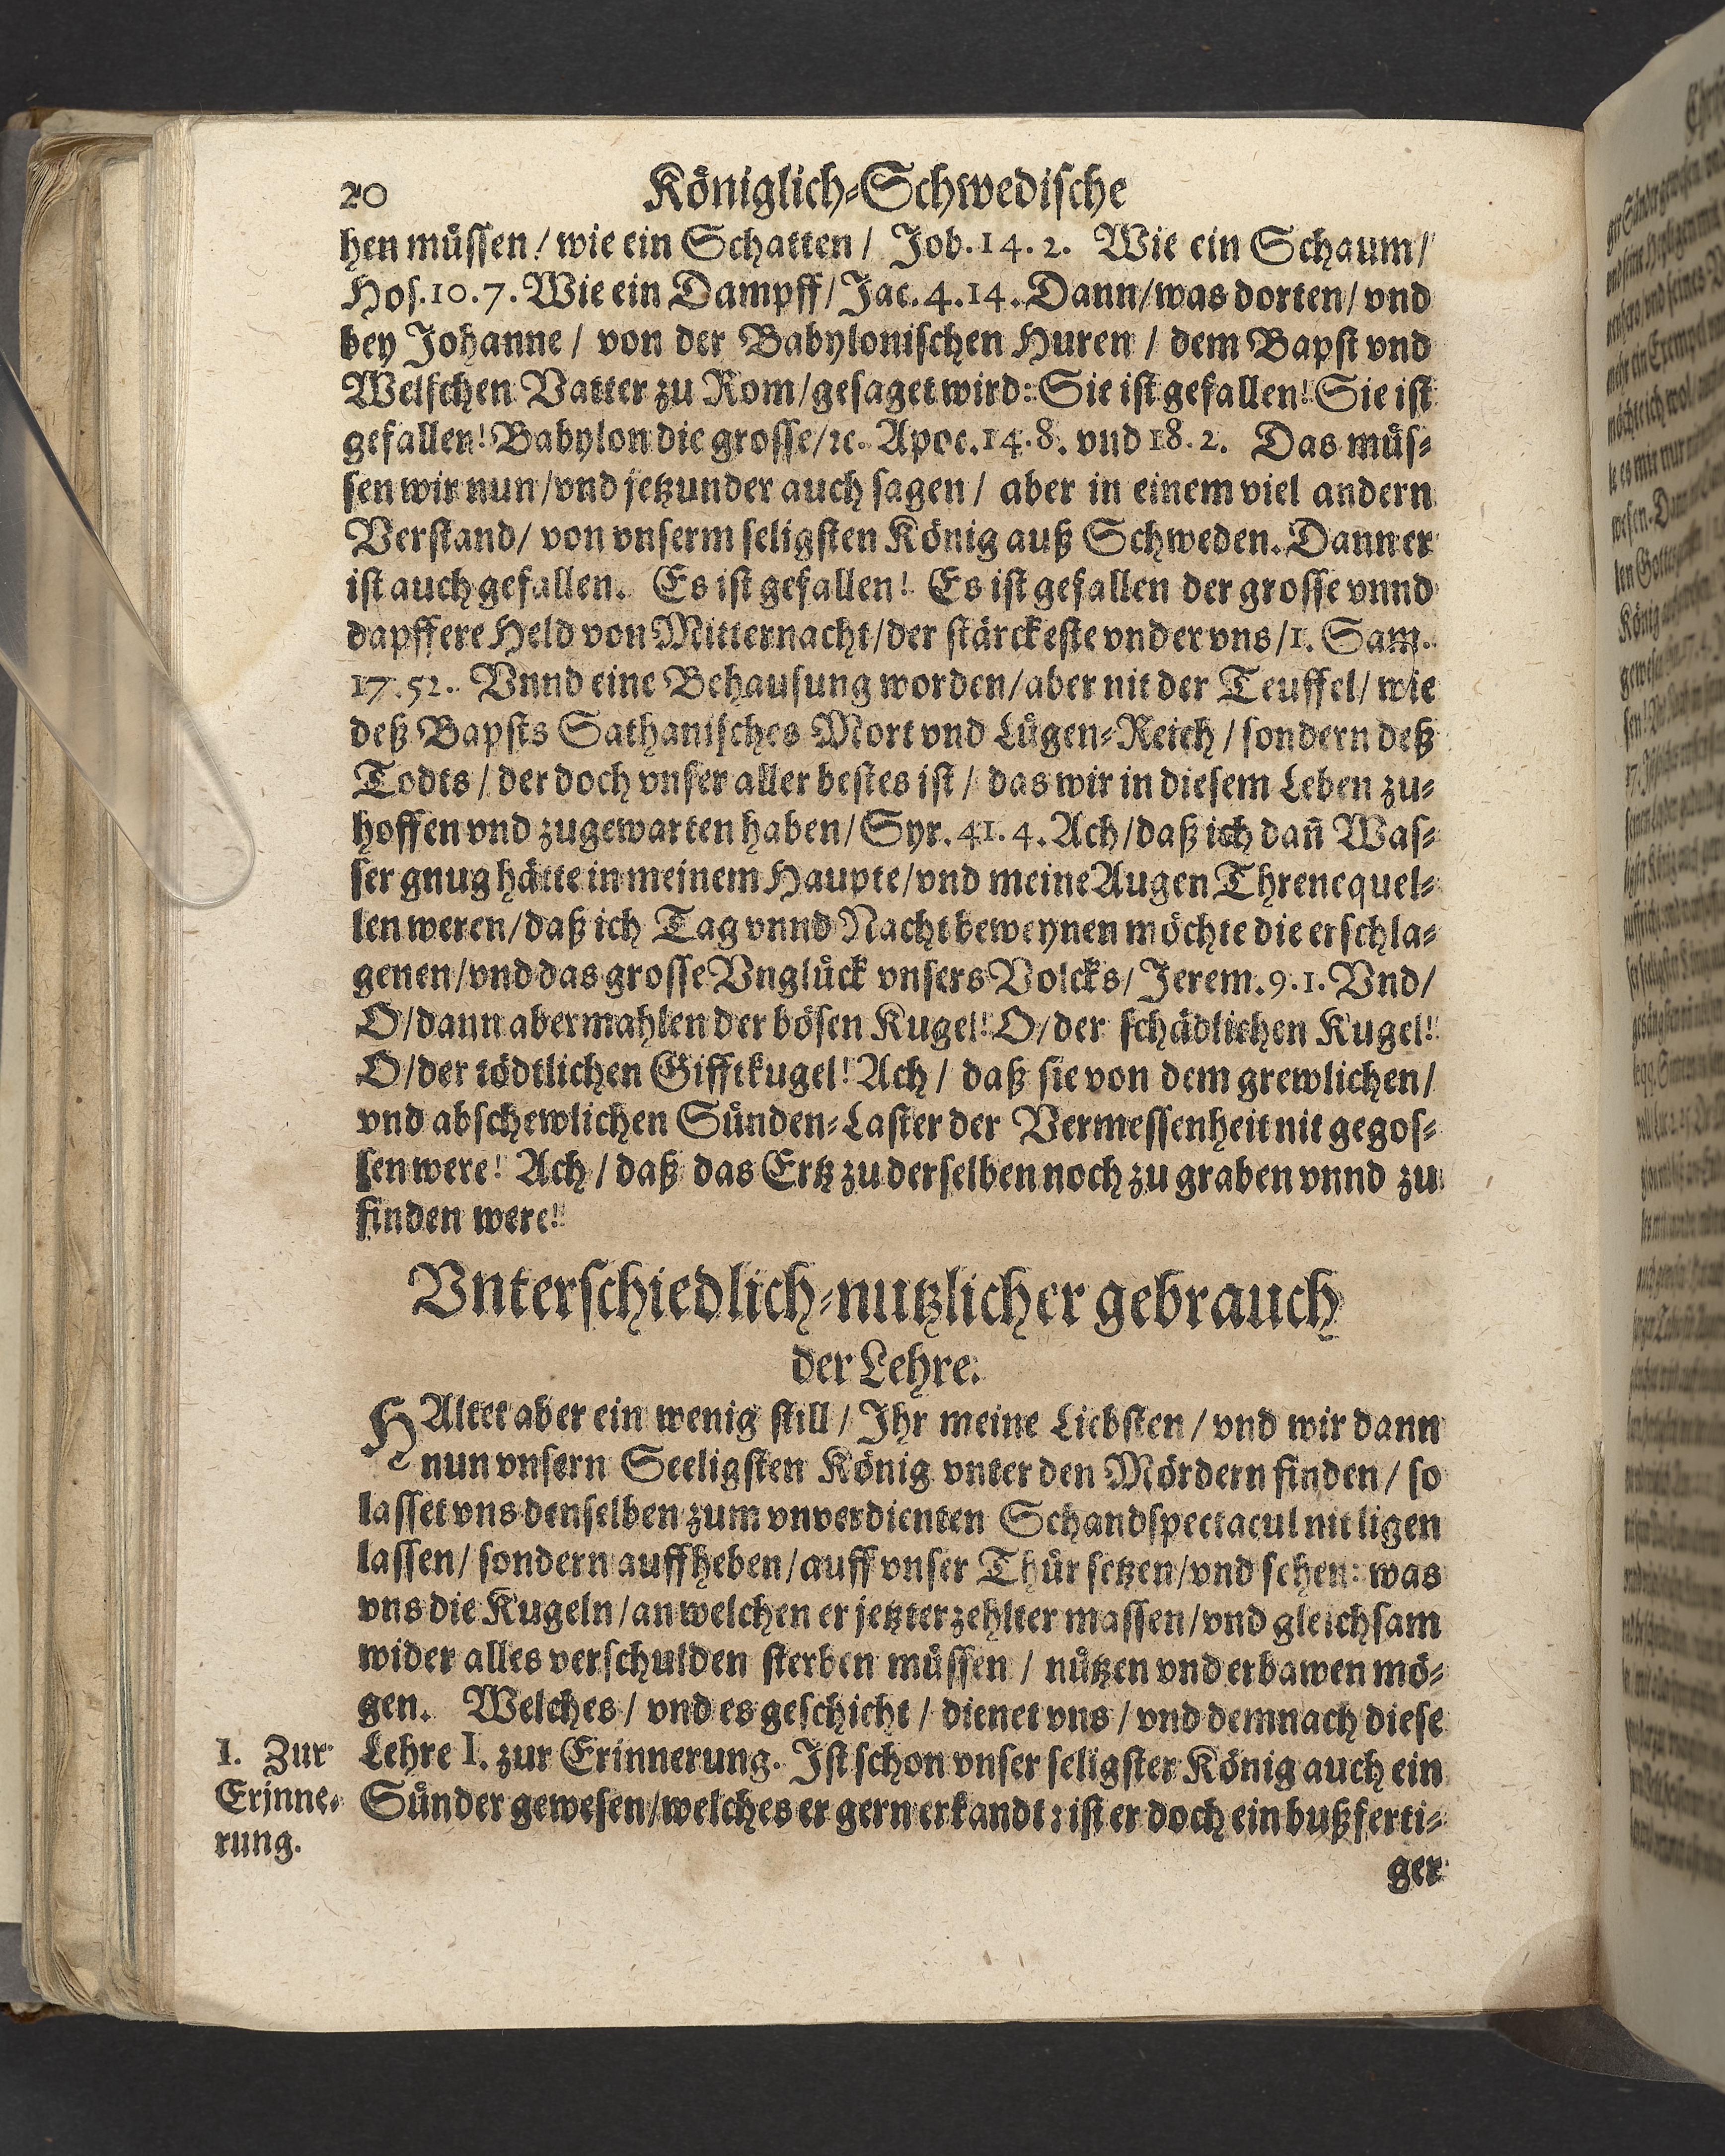 20 Königlich-Schwedische
hen müssen / wie ein Schatten / Job. 14. 2. Wie ein Schaum /
Hos. 10. 7. Wie ein Dampff / Jac. 4. 14. Dann / was dorten / vnd
bey Johanne / von der Babylonischen Huren / dem Bapst vnd
Welschen Vatter zu Rom / gesaget wird: Sie ist gefallen! Sie ist
gefallen! Babylon die grosse / ꝛc. Apoc. 14. 8. vnd 18. 2. Das müs-
sen wir nun / vnd jetzunder auch sagen / aber in einem viel andern
Verstand / von vnserm seligsten König auß Schweden. Dann er
ist auch gefallen. Es ist gefallen! Es ist gefallen der grosse vnnd
dapffere Held von Mitternacht / der stärckeste vnder vns / 1. Sam.
17. 52. Vnnd eine Behausung worden / aber nit der Teuffel / wie
deß Bapsts Sathanisches Mort vnd Lügen-Reich / sondern deß
Todts / der doch vnser aller bestes ist / das wir in diesem Leben zu-
hoffen vnd zugewarten haben / Syr. 41. 4. Ach / daß ich dañ Was-
ser gnug hätte in meinem Haupte / vnd meine Augen Threnequel-
len weren / daß ich Tag vnnd Nacht beweynen möchte die erschla-
genen / vnd das grosse Vnglück vnsers Volcks / Jerem. 9. 1. Vnd /
O / dann abermahlen der bösen Kugel! O / der schädlichen Kugel!
O / der tödtlichen Gifftkugel! Ach / daß sie von dem grewlichen /
vnd abschewlichen Sünden-Laster der Vermessenheit nit gegos-
sen were! Ach / daß das Ertz zu derselben noch zu graben vnnd zu
finden were!
Vnterschiedlich-nutzlicher gebrauch
der Lehre.
HAltet aber ein wenig still / Ihr meine Liebsten / vnd wir dann
nun vnsern Seeligsten König vnter den Mördern finden / so
lasset vns denselben zum vnverdienten Schandspectacul nit ligen
lassen / sondern auffheben / auff vnser Thür setzen / vnd sehen: was
vns die Kugeln / an welchen er jetzterzehlter massen / vnd gleichsam
wider alles verschulden sterben müssen / nützen vnd erbawen mö-
gen. Welches / vnd es geschicht / dienet vns / vnd demnach diese
Lehre I. zur Erinnerung. Ist schon vnser seligster König auch ein
Sünder gewesen / welches er gern erkandt; ist er doch ein bußferti-
ger
I. Zur
Erinne-
rung.